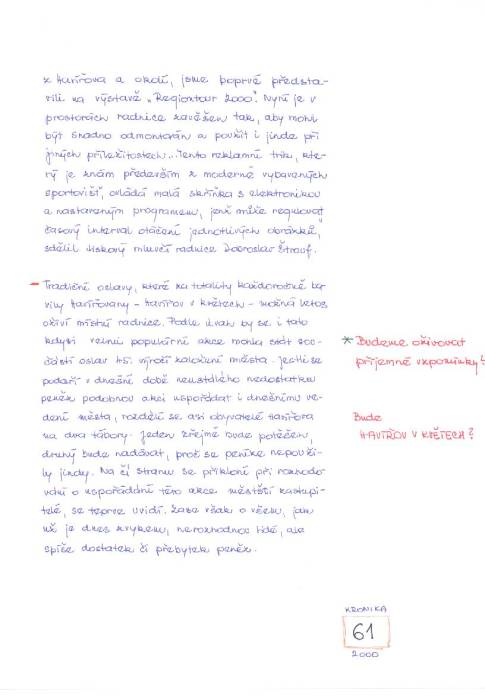 z Havířova a okolí, jsme poprvé předsta-
vili na výstavě „Regiontour 2000“. Nyní je v
prostorách radnice zavěšen tak, aby mohl
být snadno odmontován a použit i jinde při
jiných příležitostech...Tento reklamní trik, kte-
rý je znám především z moderně vybavených
sportovišť, ovládá malá skříňka s elektronikou
a nastaveným programem, jenž může regulovat
časový interval otáčení jednotlivých obrázků,“
sdělil tiskový mluvčí radnice Dobroslav Štrauf.
– Tradiční oslavy, které za totality každoročně ba-
vily Havířovany – Havířov v květech – možná letos
oživí místní radnice. Podle úvah by se i tato
kdysi velmi populární akce mohla stát sou-
částí oslav 45. výročí založení města. Jestli se
podaří v dnešní době neustálého nedostatku
peněz podobnou akci uspořádat i dnešnímu ve-
dení města, rozdělí se asi obyvatelé Havířova
na dva tábory. Jeden zřejmě bude potěšen,
druhý bude nadávat, proč se peníze nepouži-
ly jindy. Na čí stranu se přikloní při rozhodo-
vání o uspořádání této akce městští zastupi-
telé, se teprve uvidí. Zase však o všem, jak
už je dnes zvykem, nerozhodnou lidé, ale
spíše dostatek či přebytek peněz.
* Budeme oživovat
příjemné vzpomínky!
Bude
HAVÍŘOV V KVĚTECH?
KRONIKA
61
2000